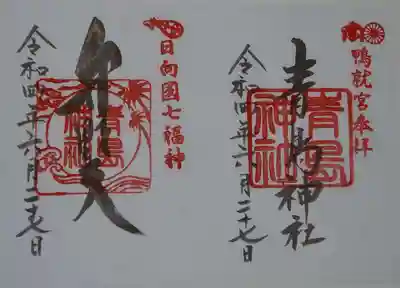 鴨就宮奉拝
青島神社
青島
神社
令和四年六月二十七日
日向國七福神
弁財天
青島
神社
令和四年六月二十七日